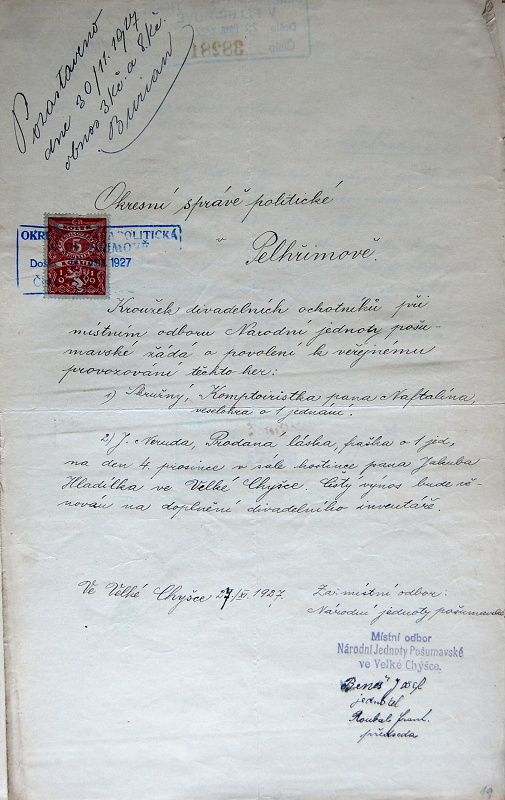 38281
Pozastaveno
dne 30/11. 1927
obnos 3 Kč. a 8 Kč.
Burian
Okresní správě politické
v
Pelhřimově.
OKRE POLITICKÁ
5
1927
1919
Kroužek divadelních ochotníků při
místním odboru Národní jednoty pošu-
mavské žádá o povolení k veřejnému
provozování těchto her:
1) Skružný, Komptoiristka pana Naftalína,
veselohra o 1 jednání.
2) J. Neruda, Prodaná láska, fraška o 1 jed,
na den 4. prosince v sále hostince pana Jakuba
Hladilka ve Velké Chyšce. Čistý výnos bude vě-
nován na doplnění divadelního inventáře.
Ve Velké Chyšce 27./XI. 1927.
Za: místní odbor:
Národní jednoty pošumavské
Místní odbor
Národní Jednoty Pošumavské
ve Velké Chýšce.
Beneš Josef
jednatel
Roubal Frant.
předseda
19